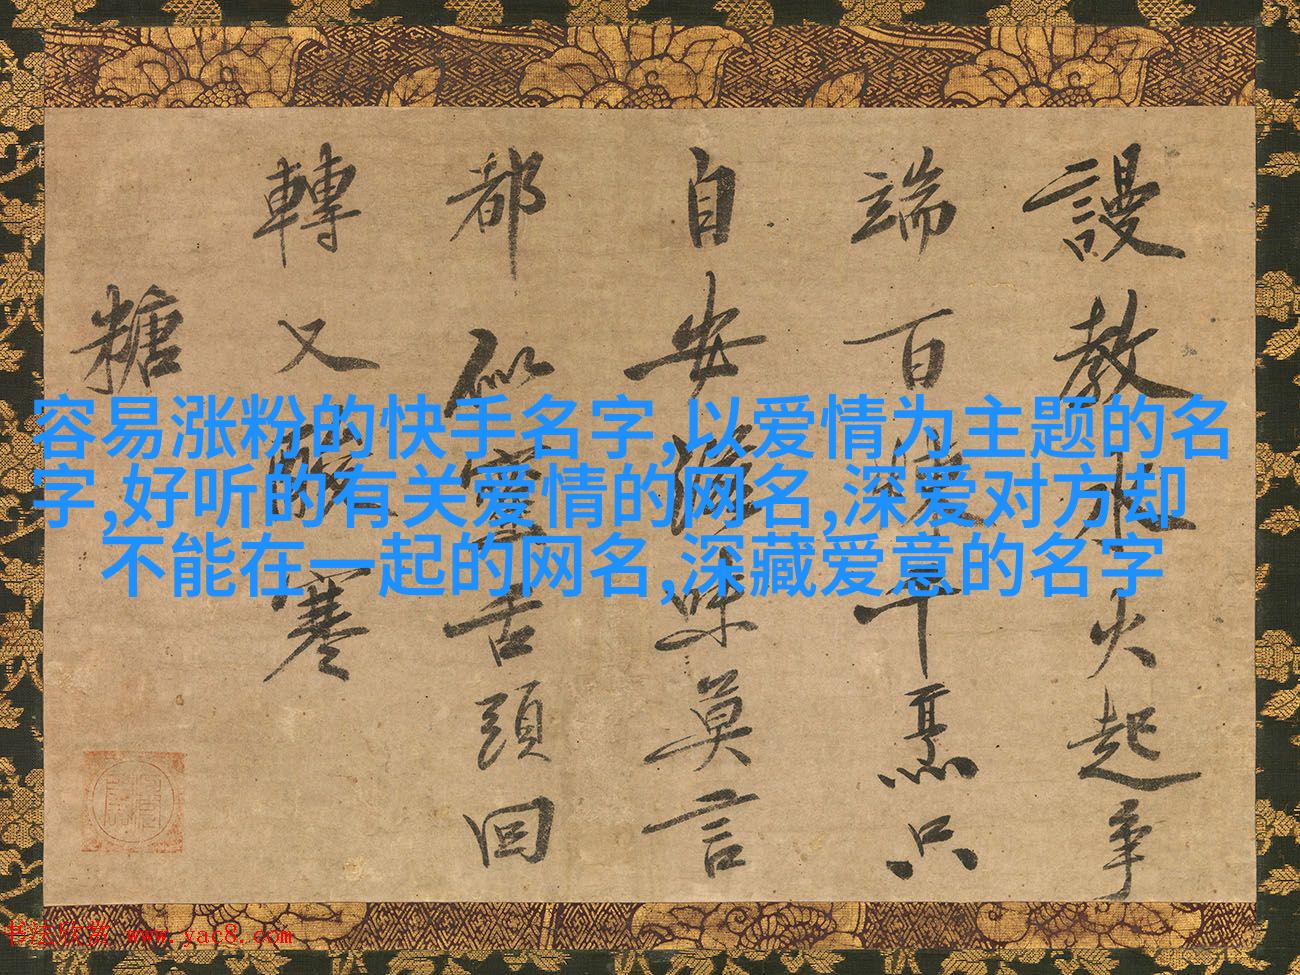 謾教水火起争
端百千熬只
自安滋味莫言
都似蜜舌頭回
轉又酸寒
糖
容易涨粉的快手名字,以爱情为主题的名
字,好听的有关爱情的网名,深爱对方却
不能在一起的网名,深藏爱意的名字
书法欣赏 www.yac8.com